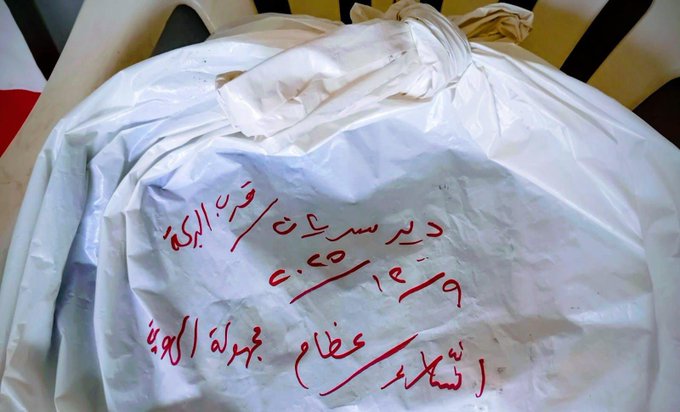 دير سريان / قرب البركة
٩/١٢/٢٠٢٥
أشلاء / عظام مجهولة الهوية